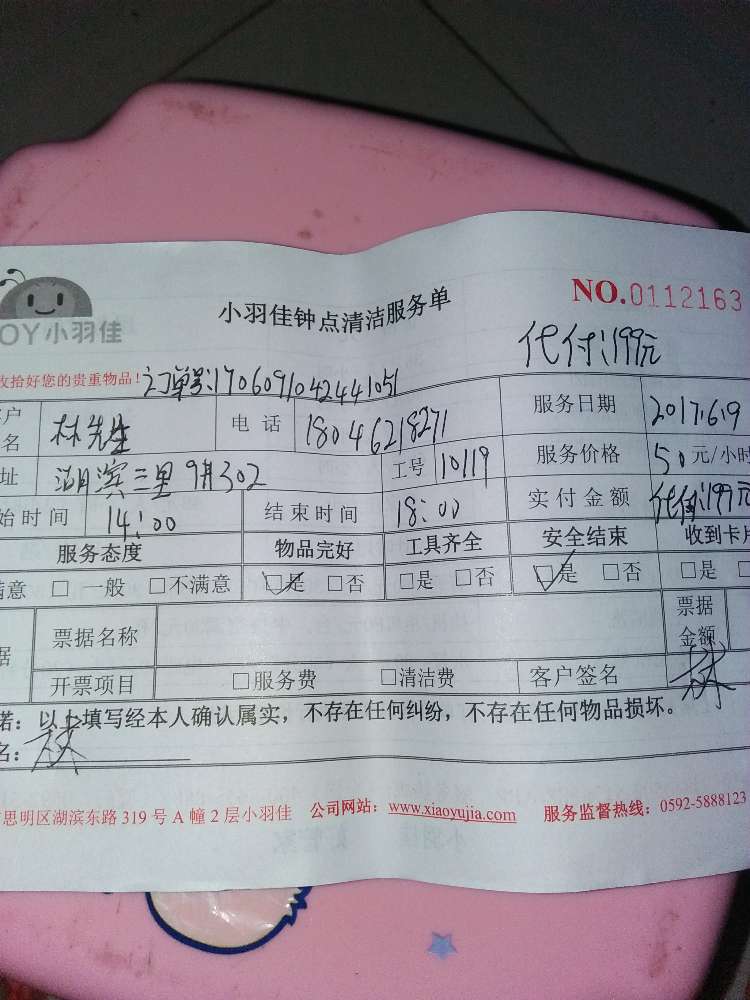 OY小羽佳
小羽佳钟点清洁服务单
NO.0112163
代付:199元
收拾好您的贵重物品! 订单号:1706091042441051
客户名 林先生 电话 18046218271 服务日期 2017.6.9
址 湖滨三里9号302 工号 10119 服务价格 50元/小时
始时间 14:00 结束时间 18:00 实付金额 代付:199元
服务态度 物品完好 工具齐全 安全结束 收到卡片
满意 □ 一般 □不满意 □是 □否 □是 □否 □是 □否 □是 □
据 票据名称 票据金额
开票项目 □服务费 □清洁费 客户签名 林
诺：以上填写经本人确认属实，不存在任何纠纷，不存在任何物品损坏。
名：林
思明区湖滨东路 319 号 A 幢 2 层小羽佳 公司网站：www.xiaoyujia.com 服务监督热线：0592-5888123